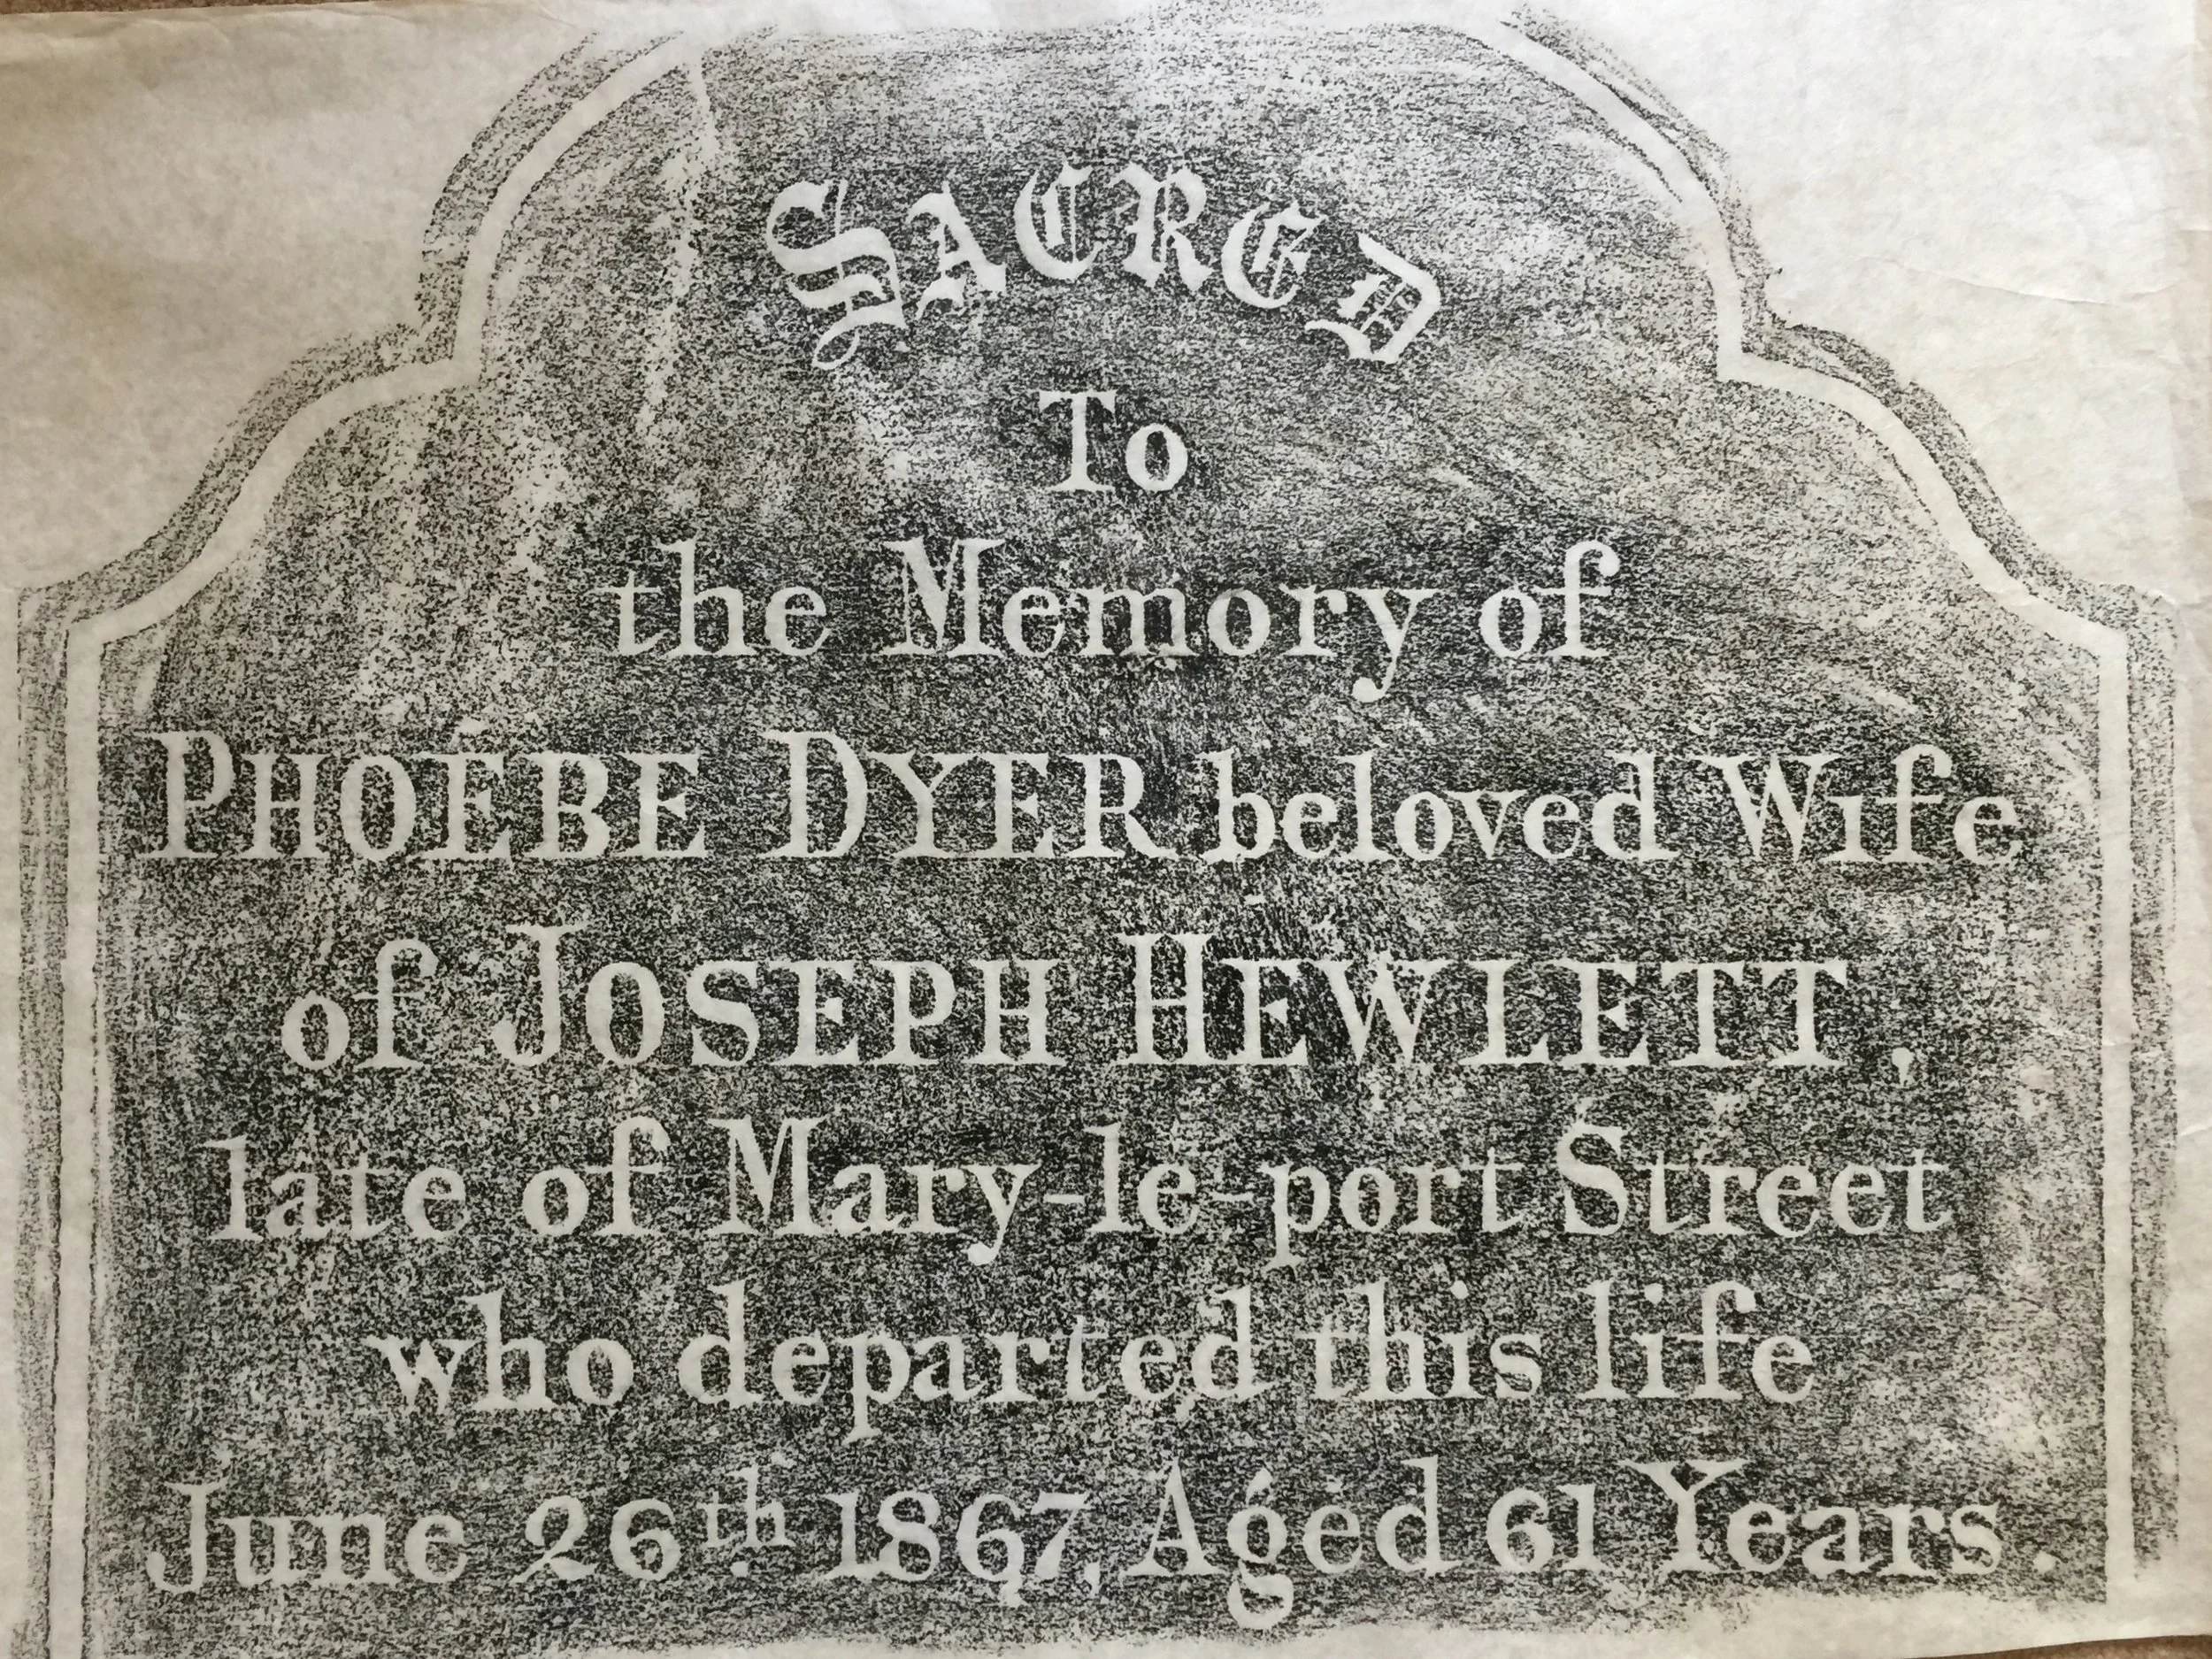 SACRED
To
the Memory of
PHOEBE DYER beloved Wife
of JOSEPH HEWLETT,
late of Mary-le-port Street
who departed this life
June 26th 1867, Aged 61 Years.